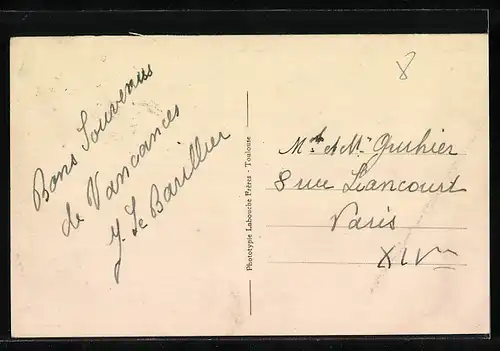 Bons Souvenirs
de Vancances
J. Le Barillier
Phototypie Labouche Frères - Toulouse
Mme et Mr Gruhier
8 rue Liancourt
Paris
XIVme
8